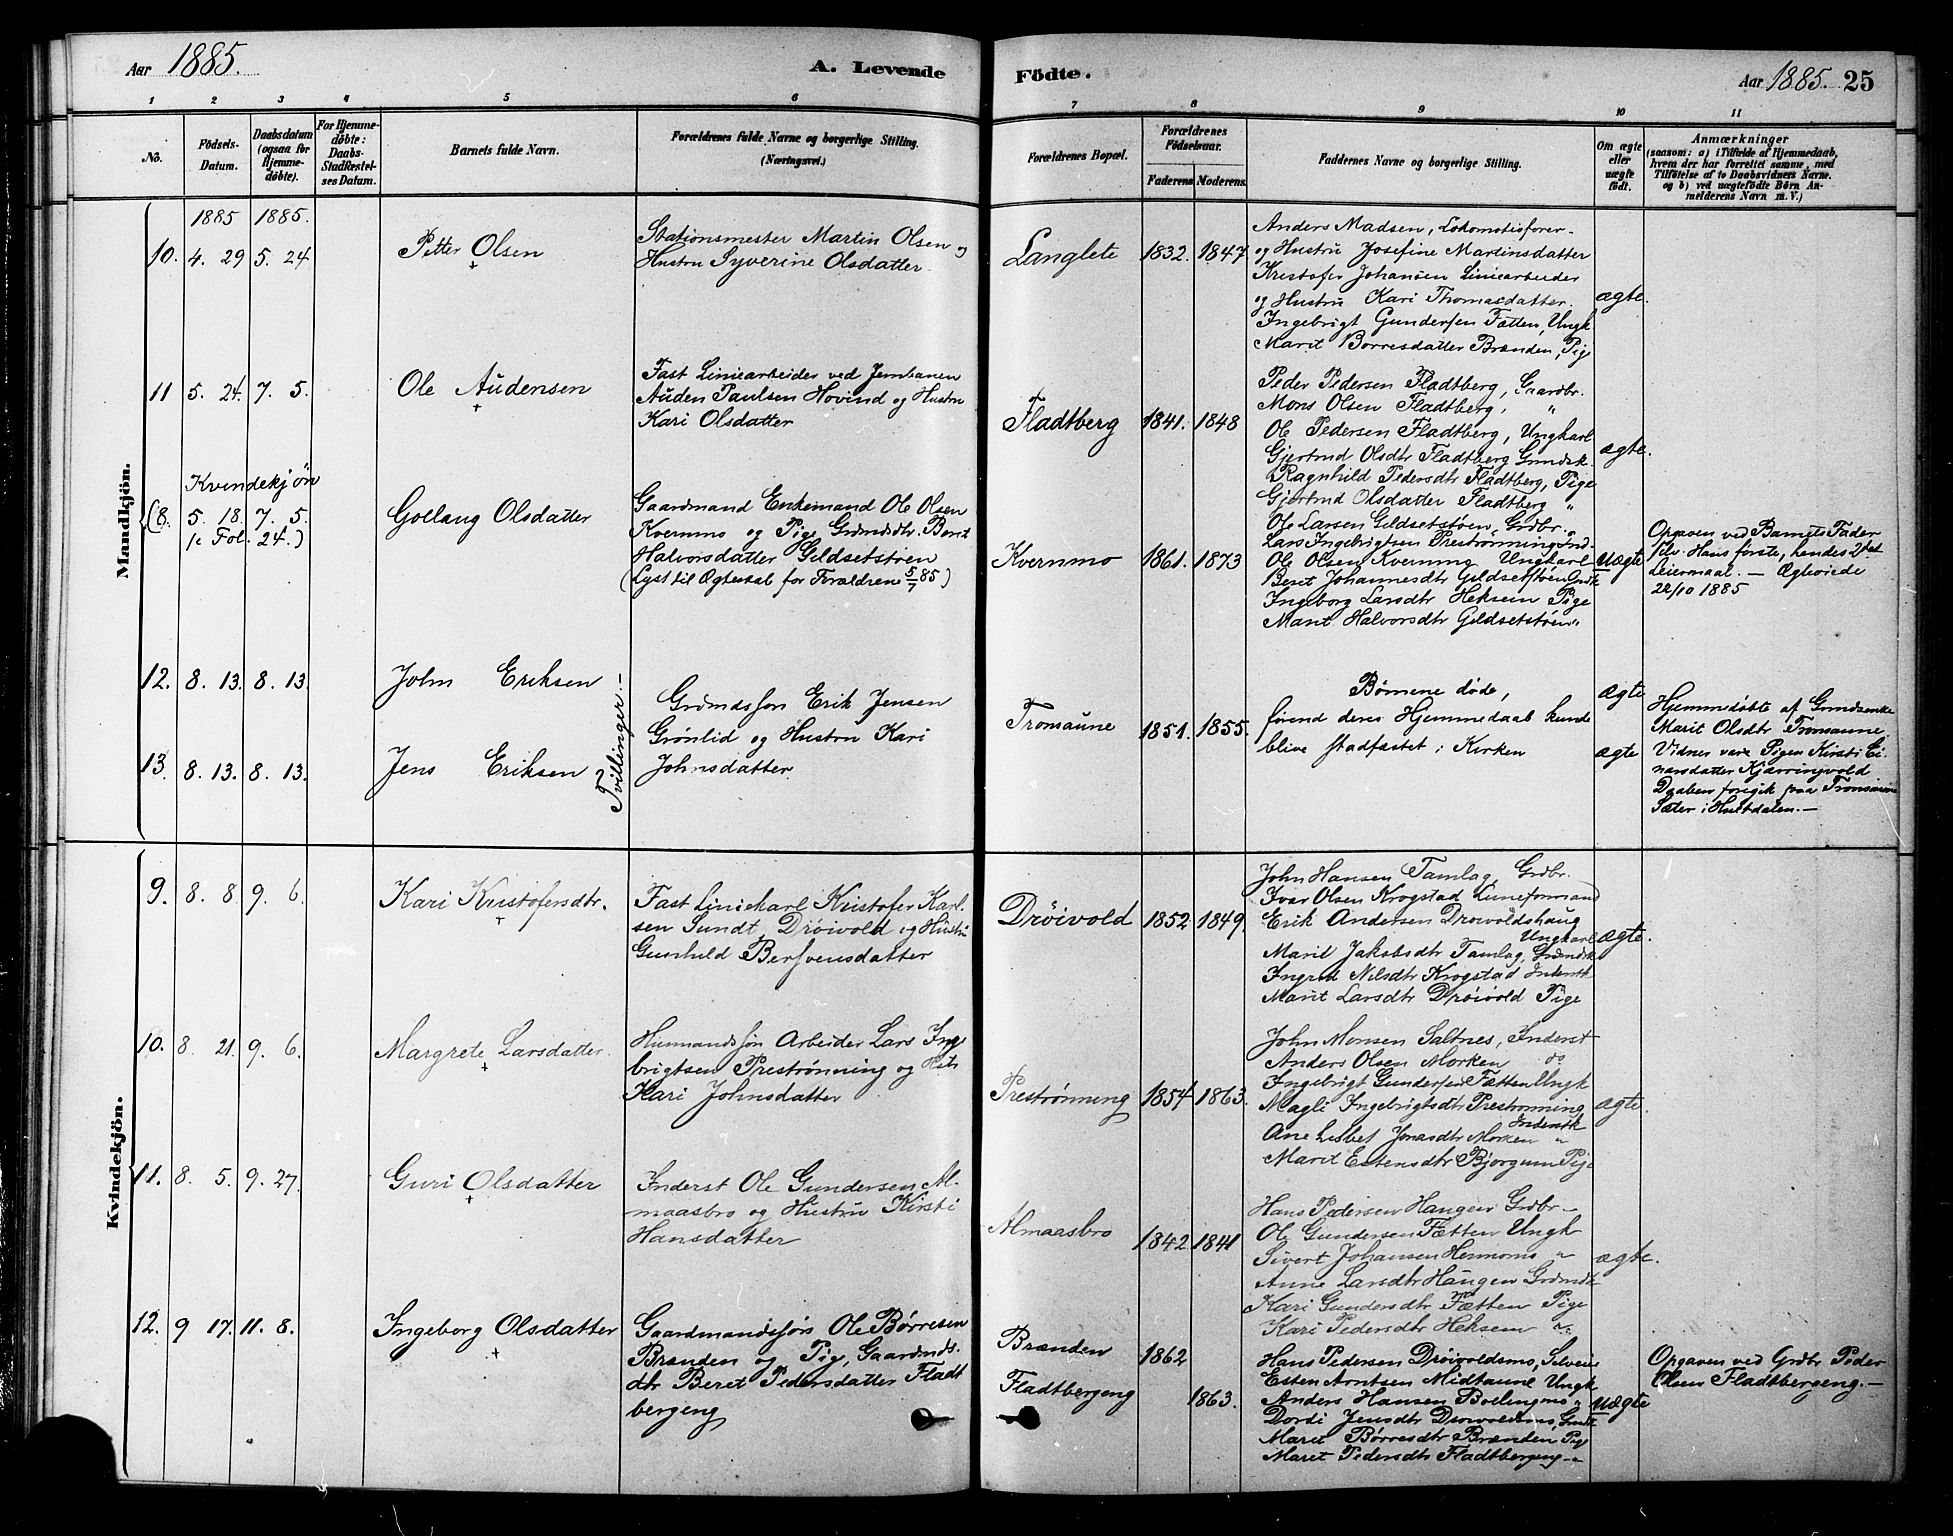 Aar 1885.
A. Levende
Födte.
Aar 1885. 25
1 2 3 4 5 6 7 8 9 10 11
No.
Födsels-
Datum.
Daabsdatum
(ogsaa for
Hjemme-
döbte).
For Hjemme-
döbte:
Daabs-
Stadfæstel-
ses Datum.
Barnets fulde Navn.
Forældrenes fulde Navne og borgerlige Stilling.
(Næringsvei.)
Forældrenes Bopæl.
Forældrenes
Födselsaar.
Faderens. Moderens.
Faddernes Navne og borgerlige Stilling.
Om ægte
eller
uægte
födt.
Anmærkninger
(saasom: a) i Tilfælde af Hjemmedaab,
hvem der har forrettet samme, med
Tilföielse af to Daabsvidners Navne.
og b) ved uægtefödte Börn An-
melderens Navn m. V.)
Mandkjön.
1885 1885.
10. 4. 29 5. 24
Petter Olsen
Stationsmester Martin Olsen og
Hustru Syverine Olsdatter
Langlete
1832. 1847.
Anders Madsen, Lokomotivfører
og Hustru Josefine Martinsdatter
Kristofer Johansen Liniearbeider
og Hustru Kari Thomasdatter.
Ingebrigt Gundersen Fætten, Ungk
Marit Børresdatter Brænden, Pige
ægte.
11 5. 24. 7. 5.
Ole Audensen
Fast Liniearbeider ved Jernbanen
Auden Paulsen Hovind og Hustru
Kari Olsdatter
Fladtberg
1841. 1848
Peder Pedersen Fladtberg, Gaardbr.
Mons Olsen Fladtberg, "
Ole Pedersen Fladtberg, Ungkarl
Gjertrud Olsdtr Fladtberg Grmdsk.
Ragnhild Pedersdtr Fladtberg, Pige
Gjertrud Olsdatter Fladtberg "
ægte.
Kvindekjön
(8. 5. 18. 7. 5.
Fol. 24.)
Gollaug Olsdatter
Gaardmand Enkemand Ole Olsen
Kvernmo og Pige Grdmdsdtr. Berit
Halvorsdatter Gildsetstøen
(Lyst til Ægteskab for Forældren 5/7 85)
Kvernmo
1861. 1873
Ole Larsen Gildsetstøen, Grdbr.
Lars Ingebrigtsen Prestrønning Ind.
Ole Olsen Kvernmo Ungkarl
Beret Johannesdtr Gildsetstøen Grdk
Ingeborg Larsdtr Heksem Pige
Marit Halvorsdtr Gildsetstøen "
Uægte
Opgaven ved Barnets Fader
selv. Hans første, hendes 2det
Leiermaal. — Ægteviede
22/10 1885
12. 8. 13. 8. 13.
John Eriksen
13. 8. 13. 8. 13.
Jens Eriksen
Tvillinger.
Grdmdssøn Erik Jensen
Grønlid og Hustru Kari
Johnsdatter.
Tronsaune
1851. 1855.
Børnene døde,
førend deres Hjemmedaab kunde
blive stadfæstet i Kirken
ægte
ægte
Hjemmedøbte af Grmdsenke
Marit Olsdtr Tronsaune.
Vidner vare Pigen Kirsti Ei-
narsdatter Kjærringvold
Daaben foregik paa Tronsaune
Sæter i Hultdalen. —
Kvindekjön.
9. 8. 8 9. 6.
Kari Kristofersdtr.
Fast Liniekarl Kristofer Karl-
sen Sundt, Drøivold og Hustru
Gunhild Bersvensdatter
Drøivold
1852 1849.
John Hansen Tamlag, Grdbr.
Ivar Olsen Krogstad Linieformand
Erik Andersen Drøivoldshaug
Ungkarl
Marit Jakobsdtr Tamlag, Grdmdsk
Ingrid Nilsdtr Krogstad Inderstk
Marit Larsdtr Drøivold Pige
ægte.
10. 8 21. 9. 6.
Margrete Larsdatter.
Husmandssøn Arbeider Lars Inge
brigtsen Prestrønning og Hstr
Kari Johnsdatter
Prestrønning
1854 1863.
John Monsen Saltnes, Inderst
Anders Olsen Morken do
Ingebrigt Gundersen Fætten Ungk
Magli Ingebrigtsdtr Prestrønning
Inderstk
Ane Lisbet Jonasdtr Morken "
Marit Estensdtr Bjorgum Pige
ægte.
11. 8. 5. 9. 27.
Guri Olsdatter
Inderst Ole Gundersen Al-
maasbro og Hustru Kirsti
Hansdatter
Almaasbro
1842 1841
Hans Pedersen Haugen Grdbr.
Ole Gundersen Fætten Ungk
Sivert Johansen Hermoms "
Anne Larsdtr Haugen Grdmdk
Kari Gundersdtr Fætten Pige
Kari Pedersdtr Heksem "
ægte.
12. 9 17. 11. 8.
Ingeborg Olsdatter
Gaardmandssøn Ole Børresen
Brænden og Pig, Gaardmds-
dtr Beret Pedersdatter Fladt
bergeng
Brænden
Fladtbergeng
1862
1863.
Hans Pedersen Drøivoldsmo, Selveier
Esten Arntsen Midtaune Ungk
Anders Hansen Bollingmo "
Dordi Jensdtr Drøivoldsmo, Grdk
Marit Børresdtr Brænden Pige
Maret Pedersdtr Fladtbergeng "
Uægte
Opgaven ved Grdbr. Peder
Olsen Fladtbergeng. —